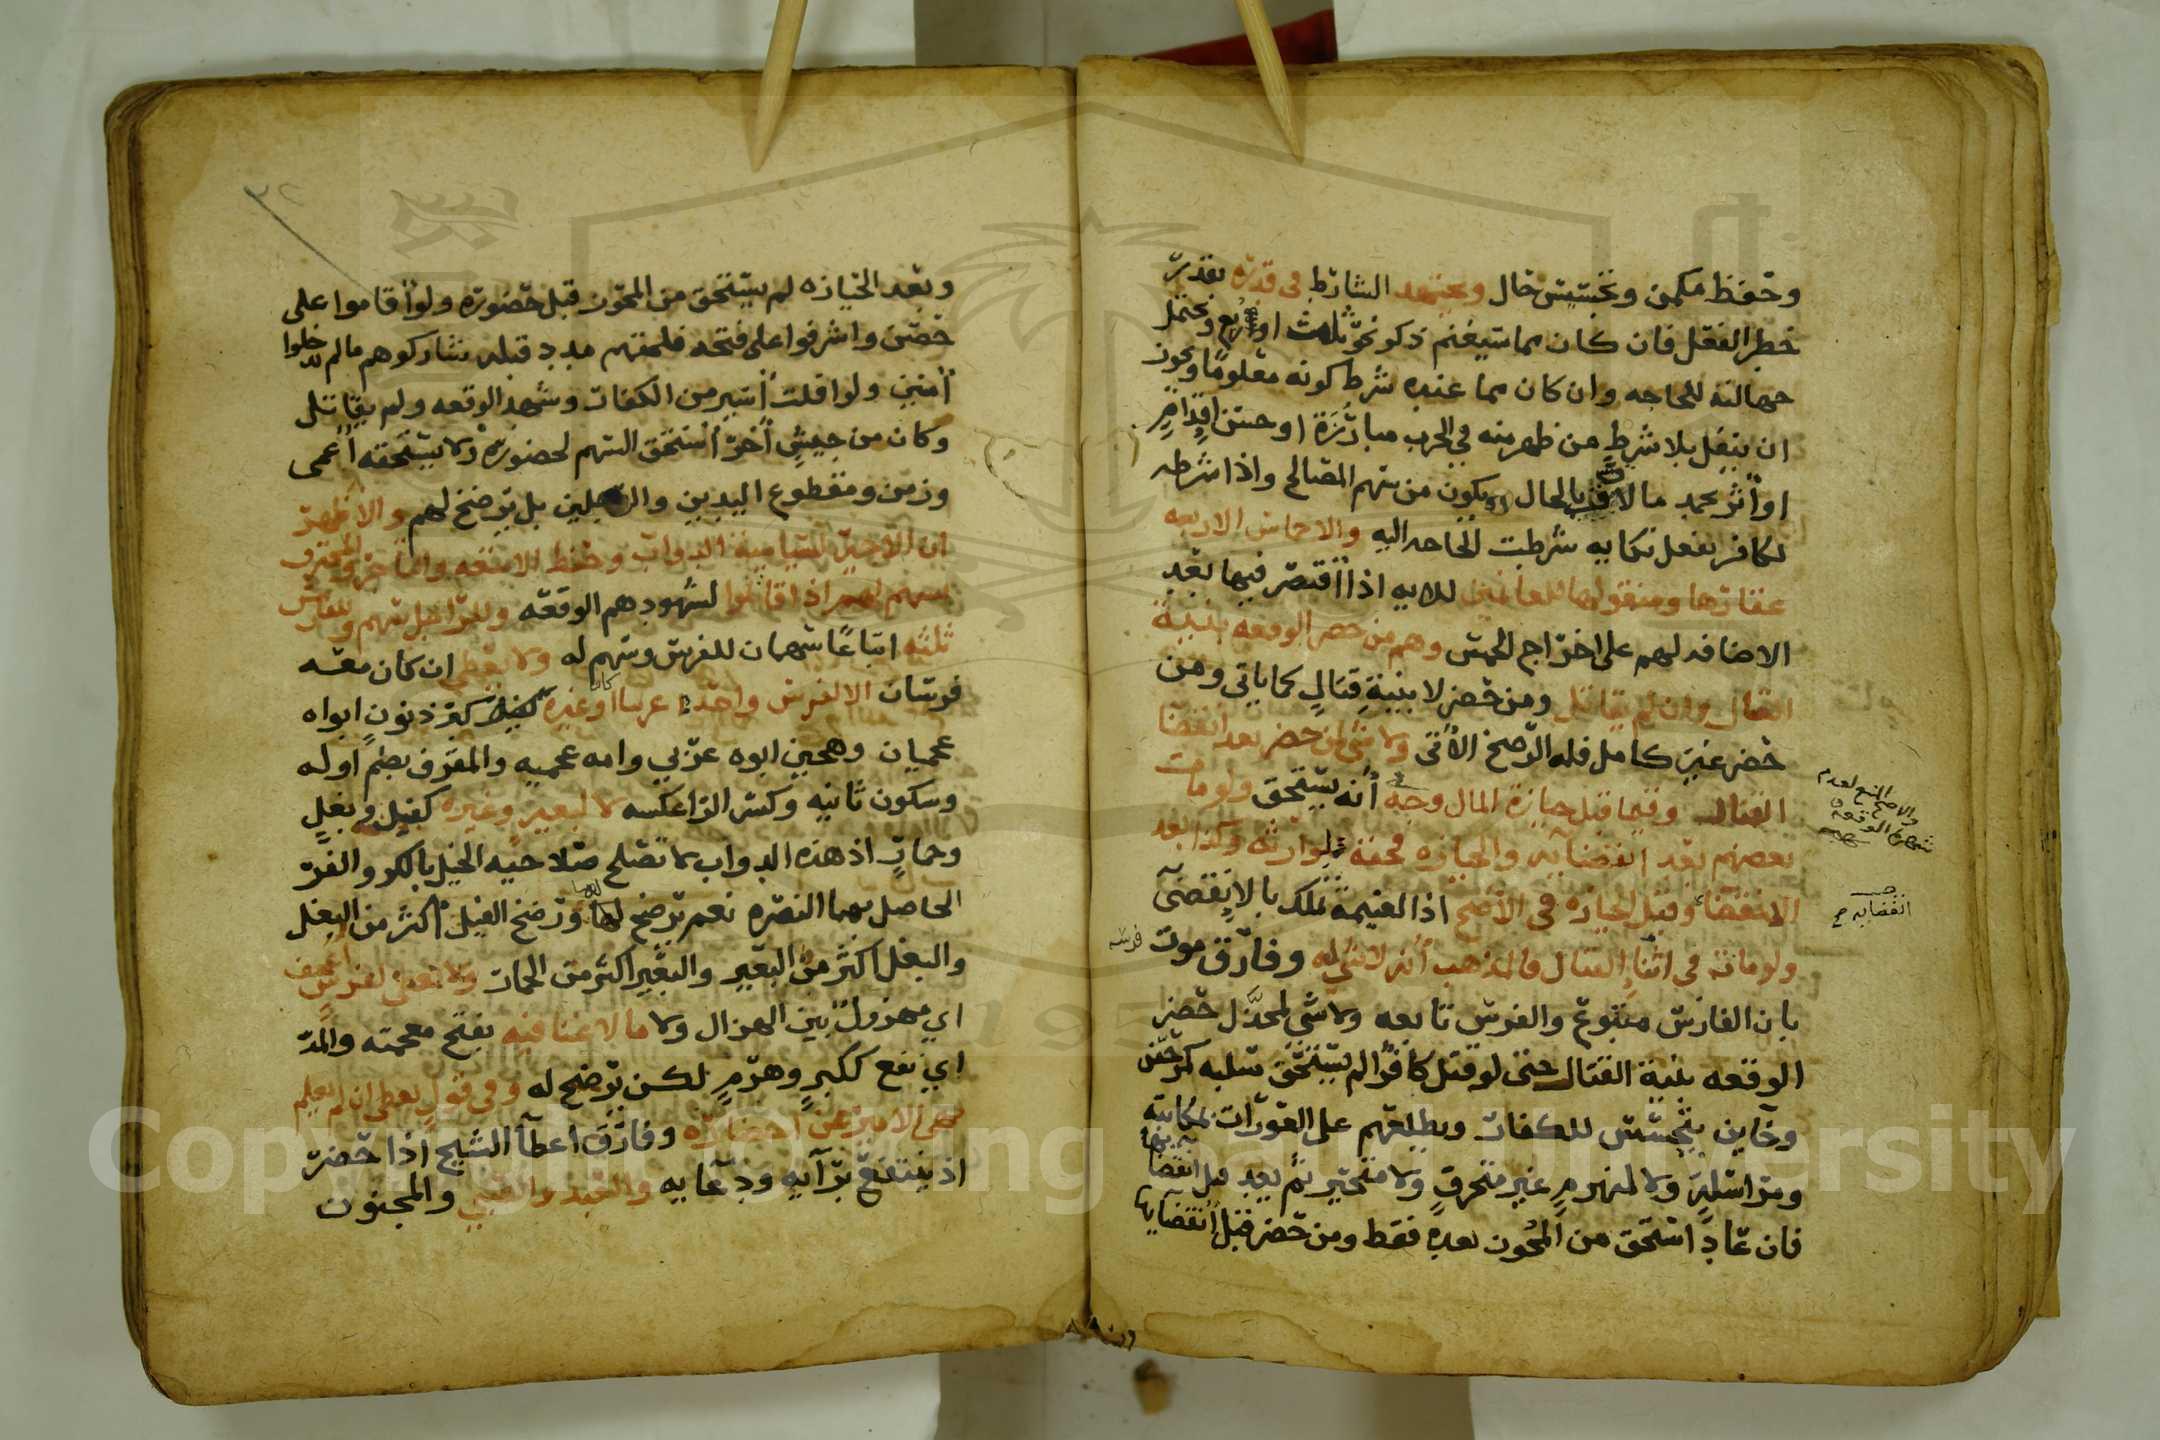 وحفظ مكمن وتجسيس حال ويجتهد الشارط في قدره بقدر
خطر الفعل فان كان مما سيغنم ذكر نحو ثلث او ربع وتحتمل
جهالته للحاجه وان كان مما عنده شرط كونه معلوما ويجوز
ان ينفل بلا شرط من ظهر منه في الحرب مبارزة او حسن اقدام
او اثر محمد مالا بالحال يكون من سهم المصالح واذا شرطه
لكافر بفعل نكايه شرطت الحاجه اليه والاخماس الاربعه
عقارها ومنقولها للغانمين للايه اذا اقتصر فيها بعد
الاضافه لهم على اخراج الخمس وهم من حضر الوقعه بنية
القتال وان لم يقاتل ومن حضر لا بنية قتال كما ياتي ومن
حضر غير كامل فله الرضخ الاتي ولا شي لمن حضر بعد انقضا
القتال وفيما قبل حيازة المال وجه انه يستحق ولو مات
بعضهم بعد انقضايه والحيازه فحقه لوارثه وكذا بعد
الانقضا وقبل الحيازه في الاصح اذ الغنيمة تملك بالانقضى
ولو مات في اثنا القتال فالمذهب انه لا شي له وفارق موت
فرسه
بان الفارس متبوع والفرس تابعه ولا شي لمخذل حضر
الوقعه بنية القتال حتى لو قتل كافرا لم يستحق سلبه كمرجف
وخاين يتجسس للكفار ويطلعهم على العورات بمكاتبه
ومراسله ولا لمنهزم غير متحرف ولا متحيز ثم يعد قبل انقضا
فان عاد استحق من المحوز بعده فقط ومن حضر قبل انقضايها
والاصح المنع لعدم
شهوده الوقعه
انقضايه صح
٣٢
وبعد الحيازه لم يستحق من المحوز قبل حضوره ولو اقاموا على
حصن واشرفوا على فتحه فلحقهم مدد قبله شاركوهم مالم يدخلوا
امنين ولو افلت اسير من الكفار وشهد الوقعه ولم يقاتل
وكان من جيش اخر استحق السهم لحضوره ولا يستحقه اعمى
وزمن ومقطوع اليدين والرجلين بل يرضخ لهم والاظهر
ان الاجير لسياسة الدواب وحفظ الامتعه والتاجر والمحترف
يسهم لهم اذا قاتلوا لشهودهم الوقعه وللراجل سهم وللفارس
ثلثه اتباعا سهمان للفرس وسهم له ولا يعطى ان كان معه
فرسان الا لفرس واحد عربيا كان او غيره كبرذون ابواه
عجميان وهجين ابوه عربي وامه عجميه والمقرف بضم اوله
وسكون ثانيه وكسر الرا عكسه لا لبعير وغيره كفيل وبغل
وحمار اذ هذه الدواب لا تصلح صلاحية الخيل بالكر والفر
الحاصل بهما النصره نعم يرضخ لها ورضخ الفيل اكثر من البغل
والبغل اكثر من البعير والبعير اكثر من الحمار ولا يعطى لفرس اعجف
اي مهزول بين الهزال ولا ما لا غنا فيه بفتح معجمته والمد
اي نفع ككبير وهرم لكن يرضخ له وفي قول يعطى ان لم يعلم
نهي الامير عن احضاره وفارق اعطا الشيخ اذا حضر
اذ ينتفع برايه ودعايه والعبد والصبي والمجنون